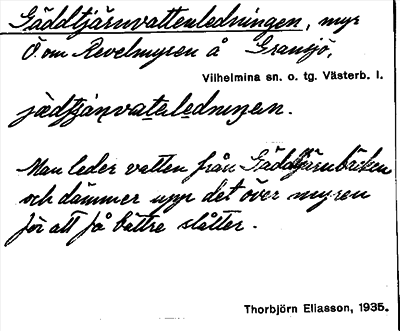 Gäddtjärnvattenledningen, myr
Ö. om Revelmyren å Gransjö,
Vilhelmina sn. o. tg. Västerb. l.
jädtjánvatəledniŋen.
Man leder vatten från Gäddtjärnbäcken
och dämmer upp det över myren
för att få bättre slåtter.
Thorbjörn Eliasson, 1935.